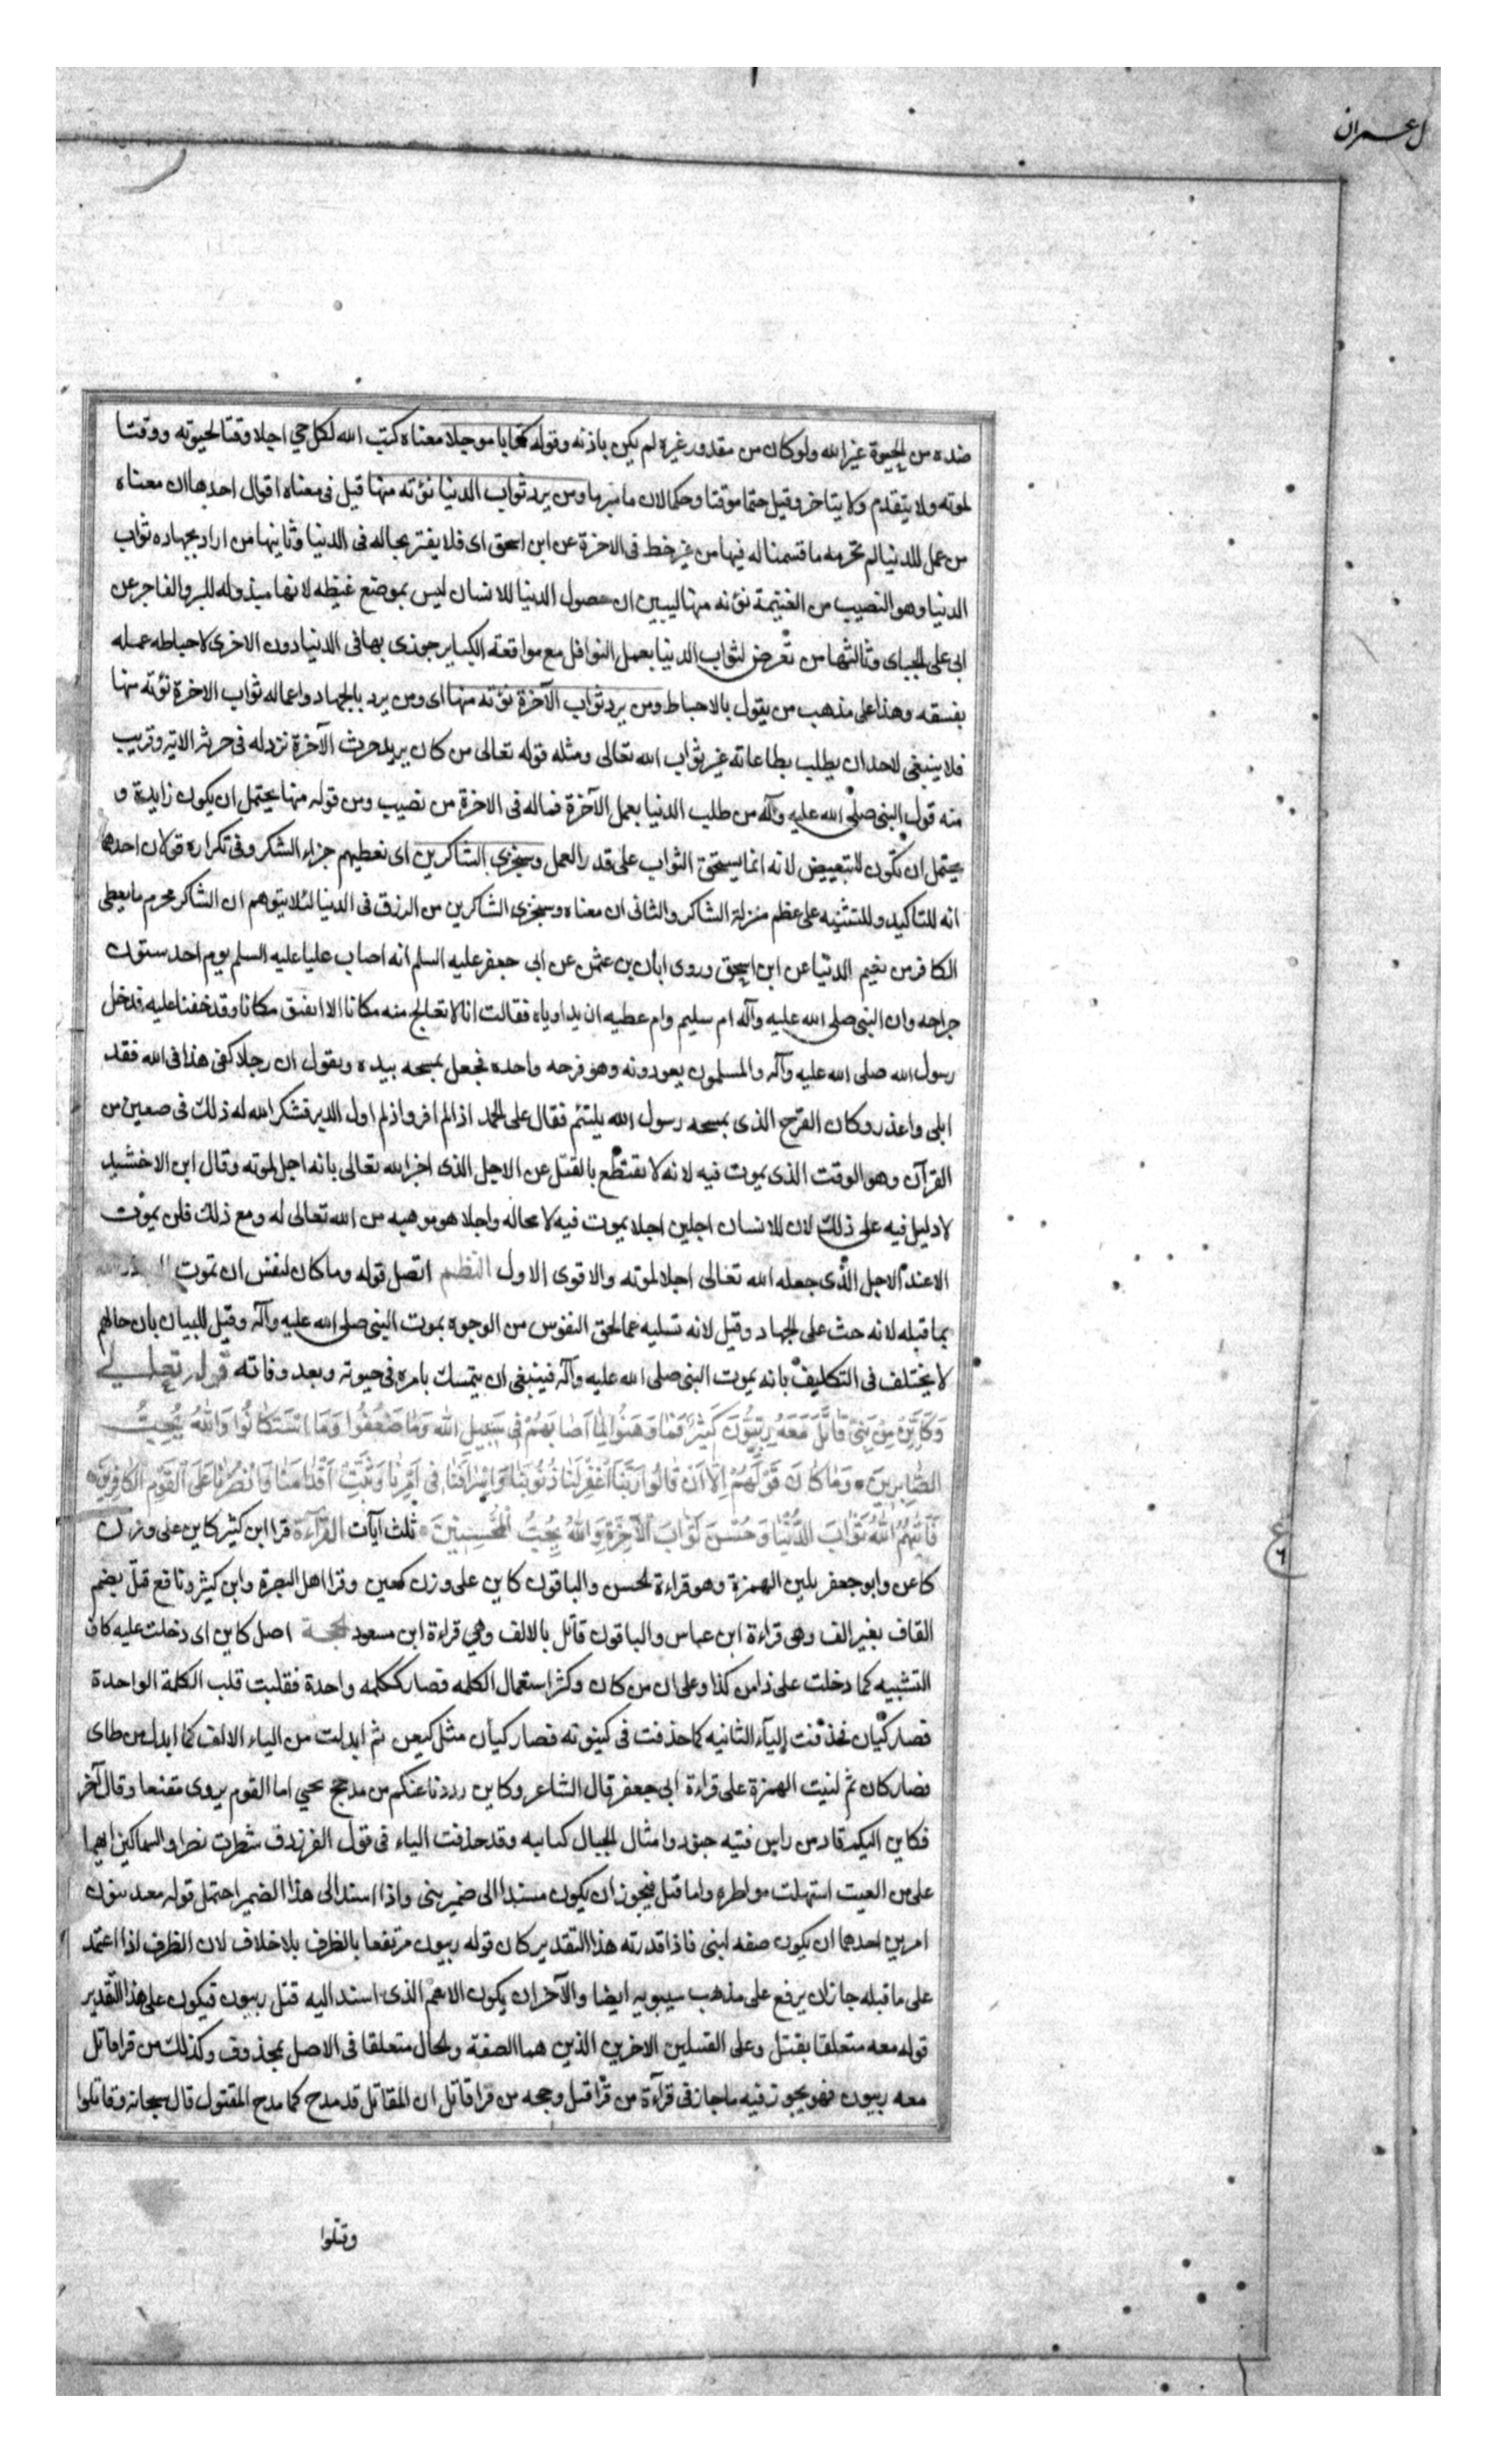 ل عمران
ضده من الحيوة غير الله ولو كان من مقدور غيره لم يكن باذنه وقوله كتابا موجلا معناه كتب الله لكل حي اجلا وقتا لحيوته ووقتا
لموته ولا يتقدم ولا يتاخر وقيل حتما موقتا وحكما لازما مبرما ومن يرد ثواب الدنيا نؤته منها قيل في معناه اقوال احدها ان معناه
من عمل للدنيا لم نحرمه ما قسمنا له فيها من غير خط في الاخرة عن ابن اسحق اي فلا يغتر بحاله في الدنيا وثانيها من اراد بجهاده ثواب
الدنيا وهو النصيب من الغنيمة نؤته منها ليبين ان حصول الدنيا للانسان ليس بموضع غبطه لانها مبذوله للبر والفاجر عن
ابي على الجباى وثالثها من تعرض لثواب الدنيا بعمل النوافل مع مواقعة الكباير جوزى بها في الدنيا دون الاخرى لاحباطه عمله
بفسقه وهذا على مذهب من يقول بالاحباط ومن يرد ثواب الآخرة نؤته منها اى ومن يرد بالجهاد واعماله ثواب الاخرة نؤته منها
فلا ينبغى لاحد ان يطلب بطاعاته غير ثواب الله تعالى ومثله قوله تعالى من كان يريد حرث الآخرة نزد له في حرثه الاية وقريب
منه قول النبى صلى الله عليه وآله من طلب الدنيا بعمل الآخرة فماله في الاخرة من نصيب ومن قوله منها يحتمل ان يكون زايدة و
يحتمل ان تكون للتبعيض لانه انما يستحق الثواب على قدر العمل وسنجزى الشاكرين اى نعطيهم جزاء الشكر وفى تكراره قولان احدها
انه للتاكيد وللتنبيه على عظم منزلة الشاكر والثانى ان معناه وسنجزى الشاكرين من الرزق فى الدنيا لئلا يتوهم ان الشاكر محرم ما يعطى
الكافر من نعيم الدنيا عن ابن اسحق وروى ابان بن عثمن عن ابى جعفر عليه السلم انه اصاب عليا عليه السلم يوم احد ستون
جراحه وان النبى صلى الله عليه وآله ام سليم وام عطيه ان يداوياه فقالت انا لا تعالج منه مكانا الا انفتق مكانا وقد خفنا عليه فدخل
رسول الله صلى الله عليه وآله والمسلمون يعودونه وهو قرحه واحده فجعل يمسحه بيده ويقول ان رجلا كفى هذا فى الله فقد
ابلى واعذر وكان القرح الذى يمسحه رسول الله يلتئم فقال على الحمد اذ لم افر واذ لم اول الدبر فشكر الله له ذلك فى صعين من
القرآن وهو الوقت الذى يموت فيه لانه لا يقتطع بالقتل عن الاجل الذى اخبر الله تعالى بانه اجل لموته وقال ابن الاخشيد
لا دليل فيه على ذلك لان للانسان اجلين اجلا يموت فيه لا محاله واجلا هو موهبه من الله تعالى له ومع ذلك فلن يموت
الا عند الاجل الذى جعله الله تعالى اجلا لموته والاقوى الاول النظم اتصل قوله وما كان لنفس ان تموت
بما قبله لانه حث على الجهاد وقيل لانه تسليه عما لحق النفوس من الوجوه بموت النبى صلى الله عليه وآله وقيل للبيان بان حالهم
لا يختلف فى التكليف بانه يموت النبى صلى الله عليه وآله فينبغى ان يتمسك بامره فى حيوته وبعد وفاته قوله تعالى
وَكَاَيِّنْ مِنْ نَبِىٍّ قَاتَلَ مَعَهُ رِبِّيُّونَ كَثِيرٌ فَمَا وَهَنُوا لِمَا اَصَابَهُمْ فِى سَبِيلِ اللهِ وَمَا ضَعُفُوا وَمَا اسْتَكَانُوا وَاللهُ يُحِبُّ
الصَّابِرِينَ وَمَا كَانَ قَوْلَهُمْ اِلَّا اَنْ قَالُوا رَبَّنَا اغْفِرْ لَنَا ذُنُوبَنَا وَاِسْرَافَنَا فِى اَمْرِنَا وَثَبِّتْ اَقْدَامَنَا وَانْصُرْنَا عَلَى الْقَوْمِ الْكَافِرِينَ
فَاٰتٰهُمُ اللهُ ثَوَابَ الدُّنْيَا وَحُسْنَ ثَوَابِ الْآخِرَةِ وَاللهُ يُحِبُّ الْمُحْسِنِينَ ثلث آيات القرآءة قرا ابن كثير كاين على وزن
كاعن وابو جعفر بلين الهمزة وهو قراءة الحسن والباقون كاين على وزن كعين وقرا اهل البصرة وابن كثير ونافع قتل بضم
القاف بغير الف وهى قراءة ابن عباس والباقون قاتل بالالف وهي قراءة ابن مسعود الحجة اصل كاين اى دخلت عليه كاف
التشبيه كما دخلت على ذا من كذا وعلى ان من كان وكثر استعمال الكلمه فصار ككلمه واحدة فقلبت قلب الكلمة الواحدة
فصار كيان فحذفت الياء الثانيه كما حذفت فى كينونه فصار كيأن مثل كيعن ثم ابدلت من الياء الالف كما ابدل من طاى
فصار كان ثم لنيت الهمزة على قراءة ابى جعفر قال الشاعر وكاين رددنا عنكم من مدجج يحي اما القوم يروى مقنعا وقال آخر
فكاين اليكم قاد من راس فتيه جنود وامثال الجبال كتايبه وقد حذفت الياء فى قول الفرزدق شطرت نصرا والسماكين ايهما
على من العيت استهلت مواطره واما قتل فيجوز ان يكون مسندا الى ضمير بنى واذا اسند الى هذا الضمير احتمل قوله معه ربيون
امرين احدهما ان يكون صفه لبنى فاذا قدرته هذا التقدير كان قوله ربيون مرتفعا بالظرف بلا خلاف لان الظرف اذا اعتمد
على ما قبله جاز ان يرفع على مذهب سيبويه ايضا والآخر ان يكون الاسم الذى اسند اليه قتل ربيون فيكون على هذا التقدير
قوله معه متعلقا بقتل وعلى القبيلين الاخرين الذين هما الصفة والحال متعلقا فى الاصل بمحذوف وكذلك من قرا قاتل
معه ربيون فهو يجوز فيه ما جاز فى قرآءة من قرا قتل وحجه من قرا قاتل ان المقاتل قد مدح كما مدح المقتول قال سبحانه وقاتلوا
ع
٦
وقتلوا